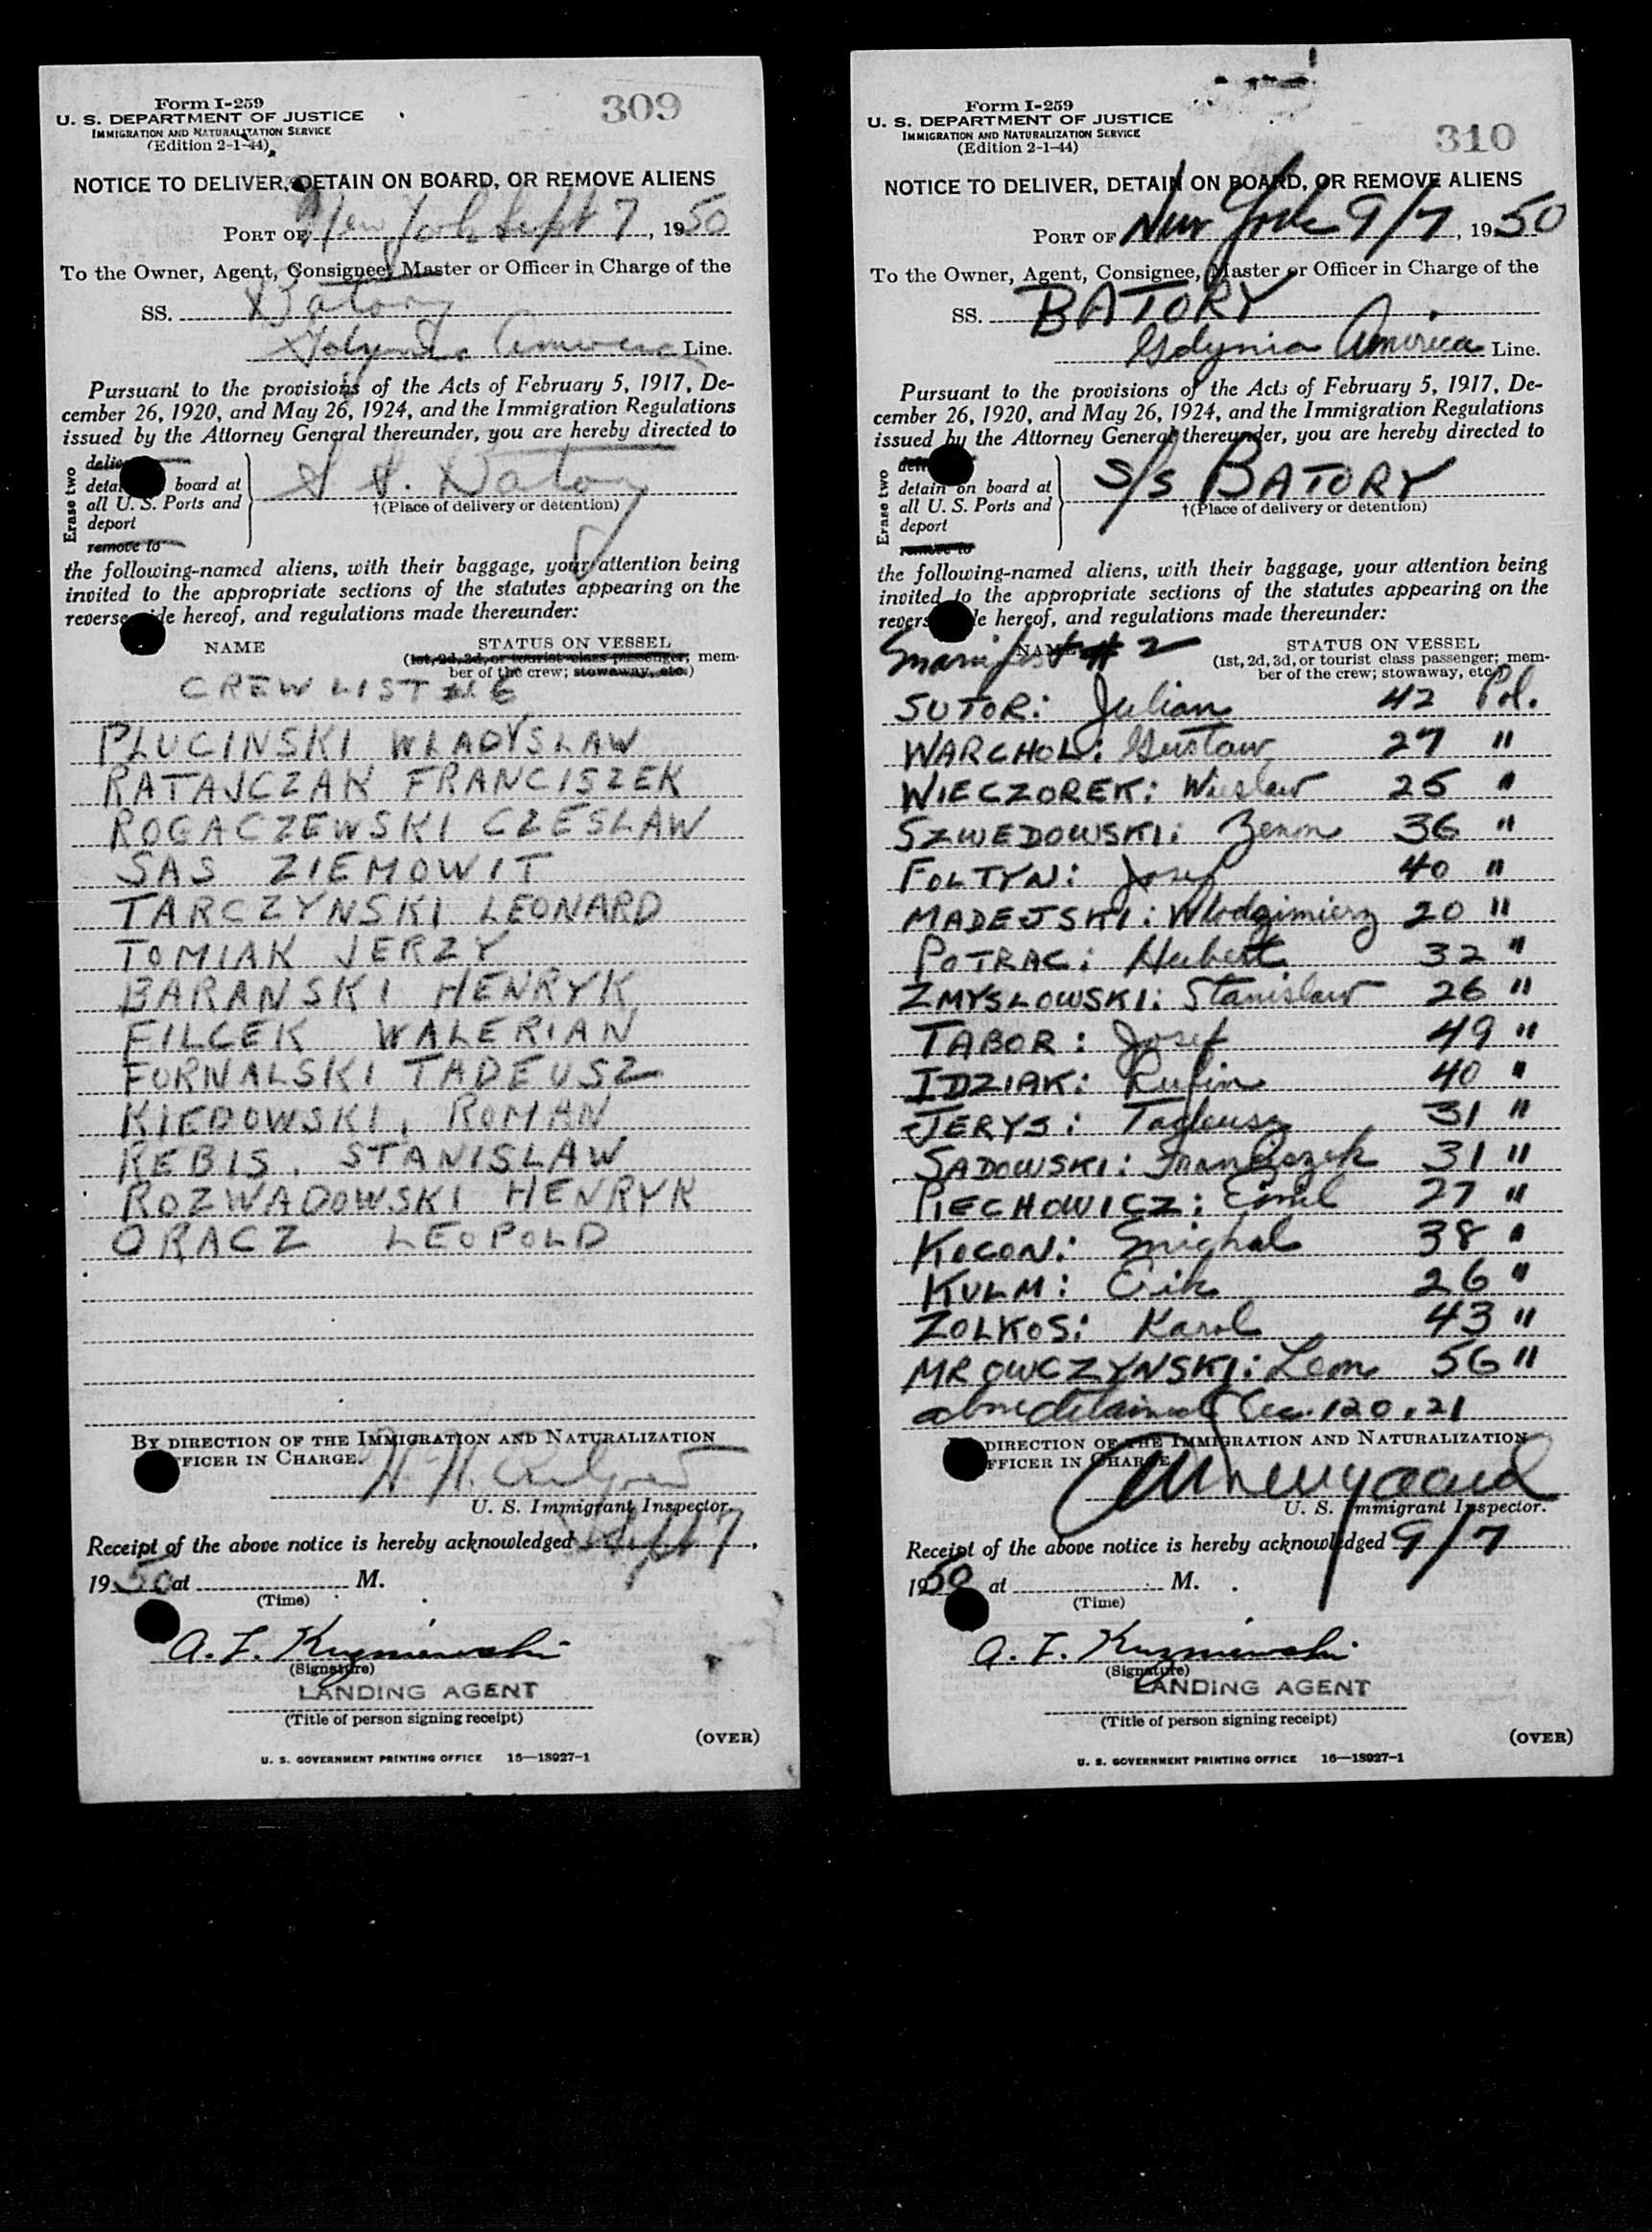 Form I-259
U. S. DEPARTMENT OF JUSTICE
IMMIGRATION AND NATURALIZATION SERVICE
(Edition 2-1-44)
309
NOTICE TO DELIVER, DETAIN ON BOARD, OR REMOVE ALIENS
PORT OF New York Sept 7, 1950
To the Owner, Agent, Consignee, Master or Officer in Charge of the
SS. Batory
Gdynia America Line.
Pursuant to the provisions of the Acts of February 5, 1917, De-
cember 26, 1920, and May 26, 1924, and the Immigration Regulations
issued by the Attorney General thereunder, you are hereby directed to
Erase two
board at
all U. S. Ports and
deport
remove to
S S. Batory
†(Place of delivery or detention)
the following-named aliens, with their baggage, your attention being
invited to the appropriate sections of the statutes appearing on the
hereof, and regulations made thereunder:
NAME STATUS ON VESSEL
(1st, 2d, 3d, or tourist class passenger; mem-
ber of the crew; stowaway, etc.)
CREW LIST # 6
PLUCINSKI WLADYSLAW
RATAJCZAK FRANCISZEK
ROGACZEWSKI CZESLAW
SAS ZIEMOWIT
TARCZYNSKI LEONARD
TOMIAK JERZY
BARANSKI HENRYK
FILCEK WALERIAN
FORNALSKI TADEUSZ
KIEDOWSKI, ROMAN
REBIS, STANISLAW
ROZWADOWSKI HENRYK
ORACZ LEOPOLD
BY DIRECTION OF THE IMMIGRATION AND NATURALIZATION
OFFICER IN CHARGE.
U. S. Immigrant Inspector.
Receipt of the above notice is hereby acknowledged Sept 7,
1950 at M.
(Time)
A. F. Kuzniewski
(Signature)
LANDING AGENT
(Title of person signing receipt)
(OVER)
U. S. GOVERNMENT PRINTING OFFICE 16—18927-1
Form I-259
U. S. DEPARTMENT OF JUSTICE
IMMIGRATION AND NATURALIZATION SERVICE
(Edition 2-1-44)
310
NOTICE TO DELIVER, DETAIN ON BOARD, OR REMOVE ALIENS
PORT OF New York 9/7, 1950
To the Owner, Agent, Consignee, Master or Officer in Charge of the
SS. BATORY
Gdynia America Line.
Pursuant to the provisions of the Acts of February 5, 1917, De-
cember 26, 1920, and May 26, 1924, and the Immigration Regulations
issued by the Attorney General thereunder, you are hereby directed to
Erase two
detain on board at
all U. S. Ports and
deport
remove to
S/S BATORY
†(Place of delivery or detention)
the following-named aliens, with their baggage, your attention being
invited to the appropriate sections of the statutes appearing on the
hereof, and regulations made thereunder:
Manifest # 2
NAME STATUS ON VESSEL
(1st, 2d, 3d, or tourist class passenger; mem-
ber of the crew; stowaway, etc.)
SUTOR: Julian 42 Pol.
WARCHOL: Gustaw 27 "
WIECZOREK: Wieslaw 25 "
SZWEDOWSKI: Zenon 36 "
FOLTYN: Josef 40 "
MADEJSKI: Wlodzimierz 20 "
POTRAC: Hubert 32 "
ZMYSLOWSKI: Stanislaw 26 "
TABOR: Josef 49 "
IDZIAK: Rufin 40 "
JERYS: Tadeusz 31 "
SADOWSKI: Franciszek 31 "
PIECHOWICZ: Emil 27 "
KOCON: Michal 38 "
KULM: Erik 26 "
ZOLKOS: Karol 43 "
MROWCZYNSKI: Leon 56 "
above detained Sec. 120.21
DIRECTION OF THE IMMIGRATION AND NATURALIZATION
OFFICER IN CHARGE.
U. S. Immigrant Inspector.
Receipt of the above notice is hereby acknowledged 9/7
1950 at M.
(Time)
A. F. Kuzniewski
(Signature)
LANDING AGENT
(Title of person signing receipt)
(OVER)
U. S. GOVERNMENT PRINTING OFFICE 16—18927-1